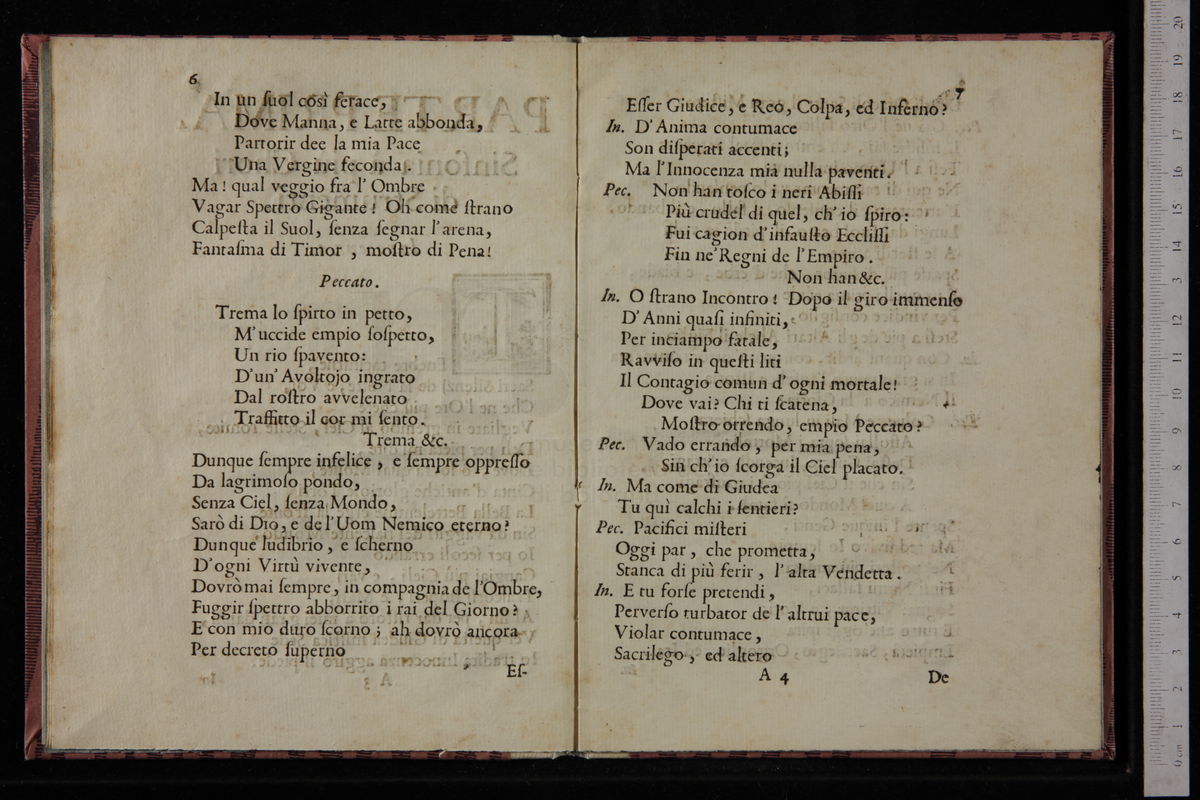 6
In un ſuol così ferace,
Dove Manna, e Latte abbonda,
Partorir dee la mia Pace
Una Vergine feconda.
Ma! qual veggio fra l'Ombre
Vagar Spettro Gigante! Oh come ſtrano
Calpeſta il Suol, ſenza ſegnar l'arena,
Fantaſma di Timor, moſtro di Pena!
Peccato.
Trema lo ſpirto in petto,
M'uccide empio ſoſpetto,
Un rio ſpavento:
D'un'Avoltojo ingrato
Dal roſtro avvelenato
Traffitto il cor mi ſento.
Trema &c.
Dunque ſempre infelice, e ſempre oppreſſo
Da lagrimoſo pondo,
Senza Ciel, ſenza Mondo,
Sarò di Dio, e de l'Uom Nemico eterno?
Dunque ludibrio, e ſcherno
D'ogni Virtù vivente,
Dovrò mai ſempre, in compagnia de l'Ombre,
Fuggir ſpettro abborrito i rai del Giorno?
E con mio duro ſcorno; ah dovrò ancora
Per decreto ſuperno
Eſ-
7
Eſſer Giudice, e Reo, Colpa, ed Inferno?
In. D'Anima contumace
Son diſperati accenti;
Ma l'Innocenza mia nulla paventi.
Pec. Non han toſco i neri Abiſſi
Più crudel di quel, ch'io ſpiro:
Fui cagion d'infauſto Eccliſſi
Fin ne'Regni de l'Empiro.
Non han &c.
In. O ſtrano Incontro! Dopo il giro immenſo
D'Anni quaſi infiniti,
Per inciampo fatale,
Ravviſo in queſti liti
Il Contagio comun d'ogni mortale!
Dove vai? Chi ti ſcatena,
Moſtro orrendo, empio Peccato?
Pec. Vado errando, per mia pena,
Sin ch'io ſcorga il Ciel placato.
In. Ma come di Giudea
Tu quì calchi i ſentieri?
Pec. Pacifici miſteri
Oggi par, che prometta,
Stanca di più ferir, l'alta Vendetta.
In. E tu forſe pretendi,
Perverſo turbator de l'altrui pace,
Violar contumace,
Sacrilego, ed altero
A 4
De